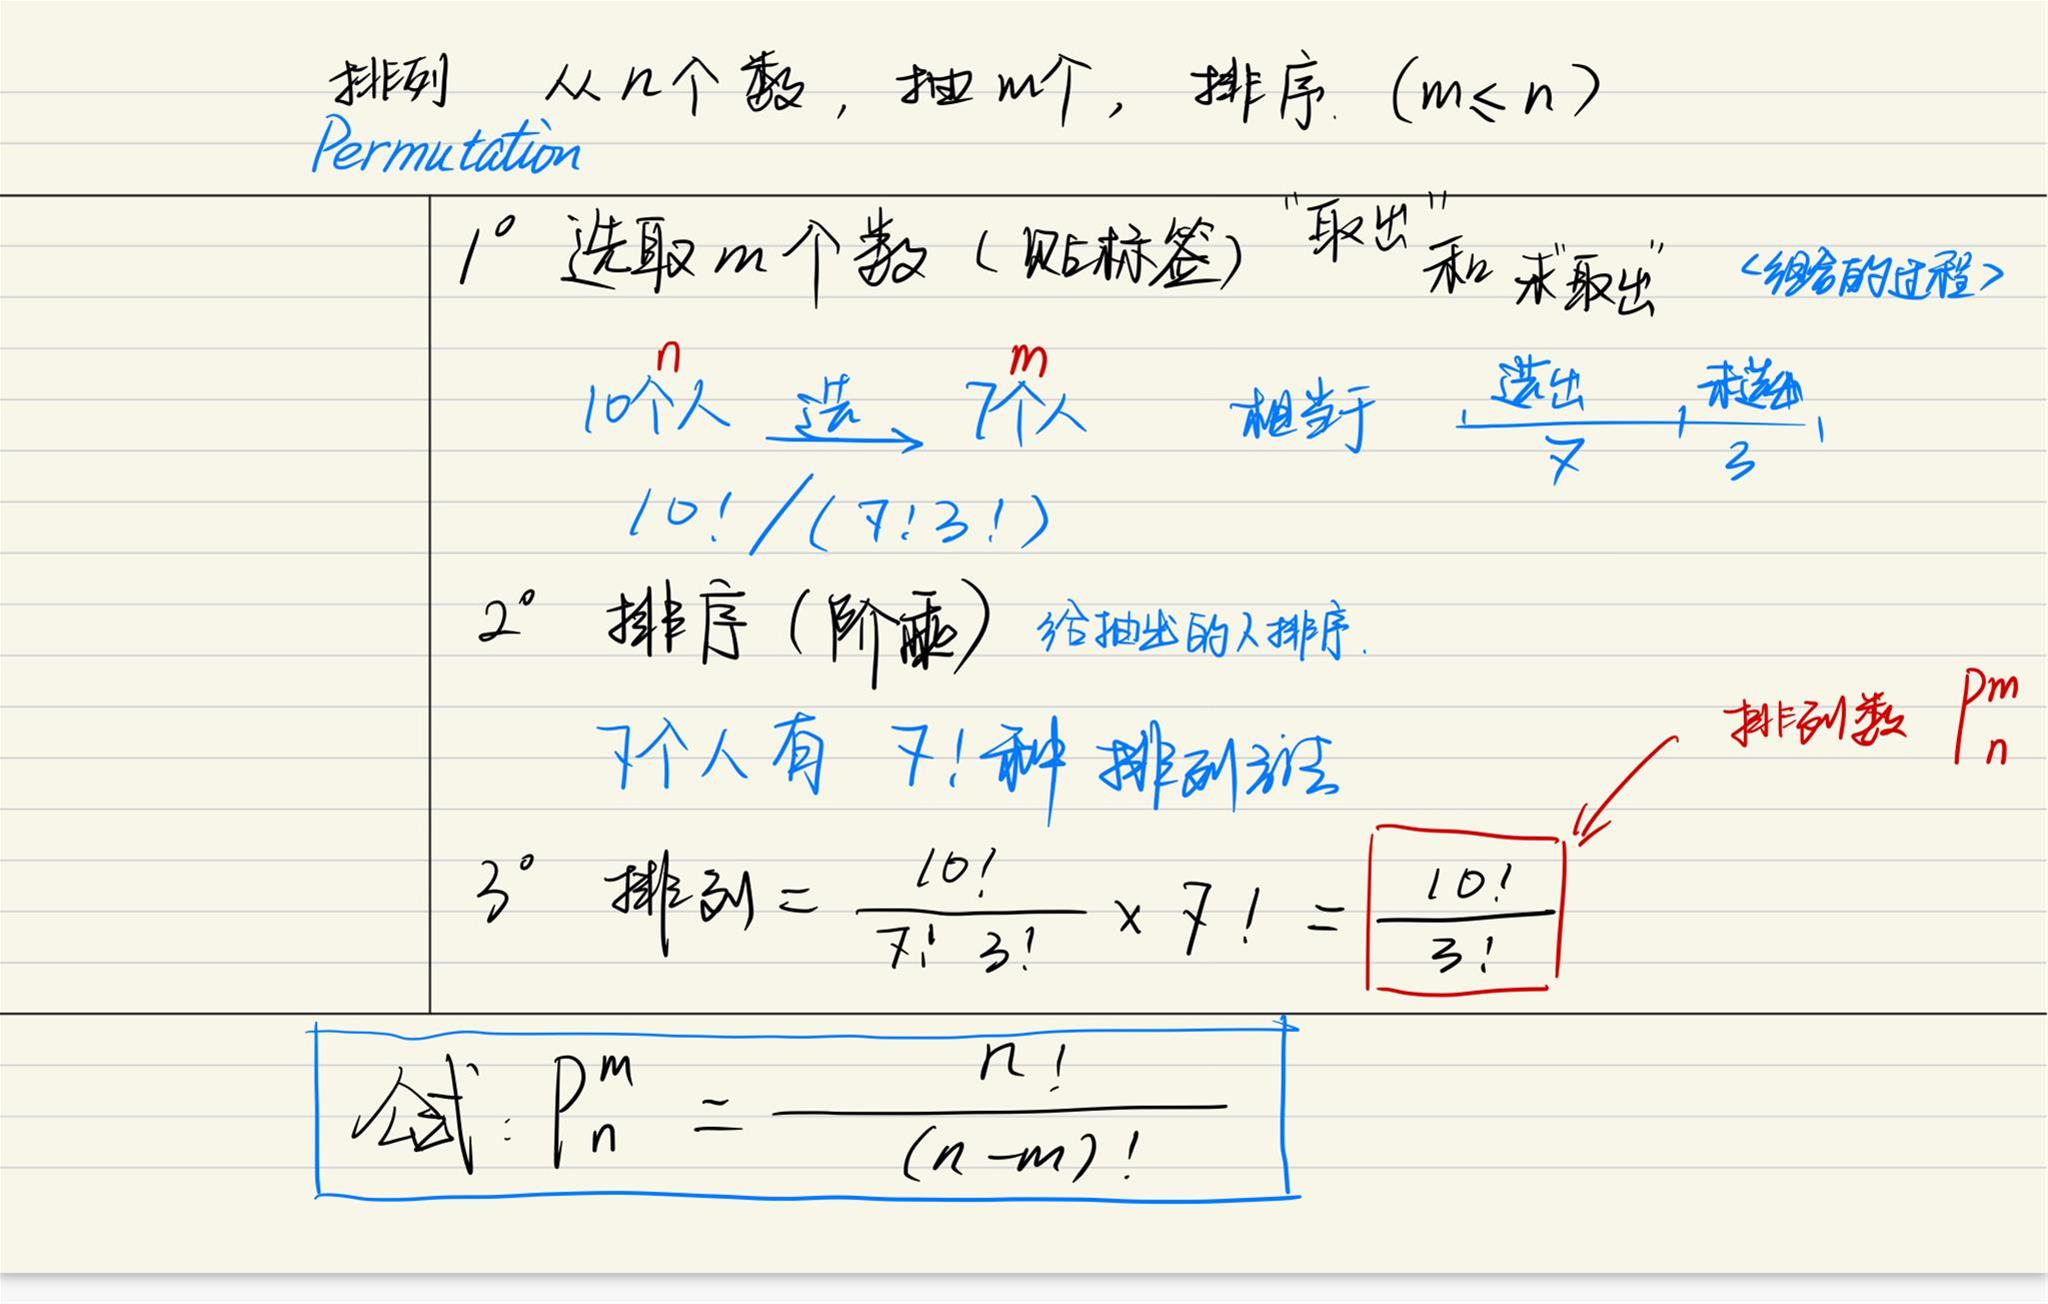 排列 从n个数，抽m个，排序.（m≤n）
Permutation
1° 选取m个数（贴标签）"取出"和"未取出" <组合的过程>
n m
10个人 选 7个人 相当于 选出 未选出
7 3
10!/(7!3!)
2° 排序（阶乘）给抽出的人排序.
7个人有 7!种排列方法
排列数 P_n^m
3° 排列 = 10!/(7! 3!) × 7! = 10!/3!
公式: P_n^m = n!/(n-m)!